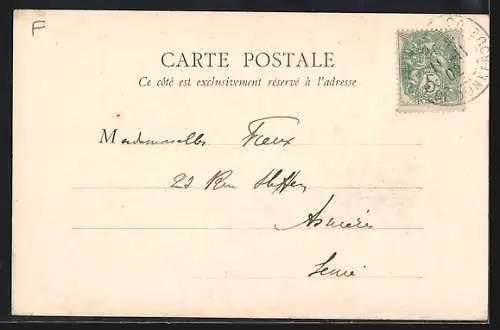 F
CARTE POSTALE
Ce côté est exclusivement réservé à l'adresse
5
Mademoiselle
23 Rue Steffen
Asnières
Seine